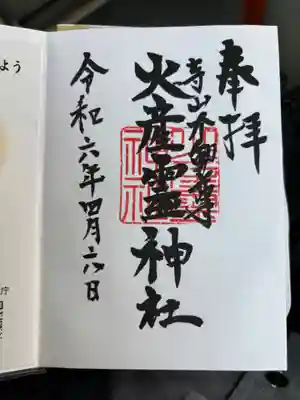 奉拝
寺山不動尊
火産霊神社
令和六年四月六日
よう
庁